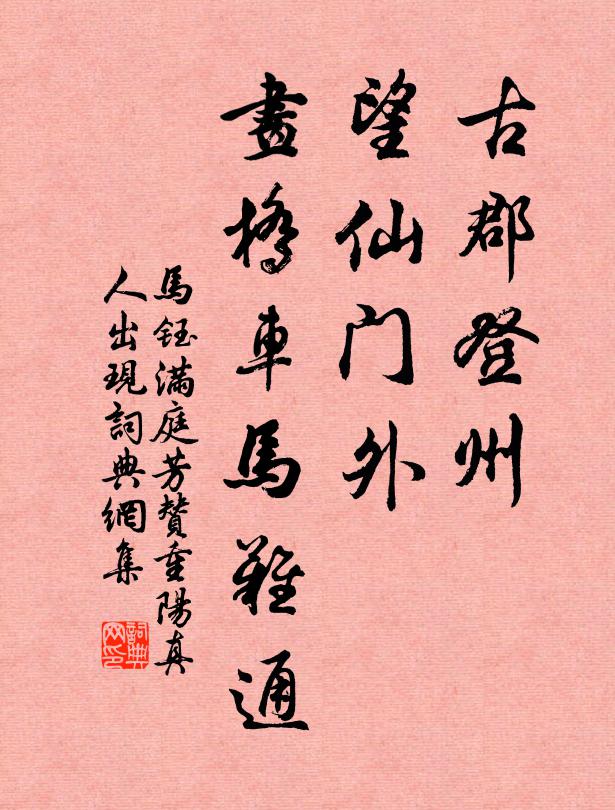 古郡登州
望仙门外
畫橋車馬難通
馬鈺滿庭芳贊重陽真
人出現詞典網集
詞典
网印